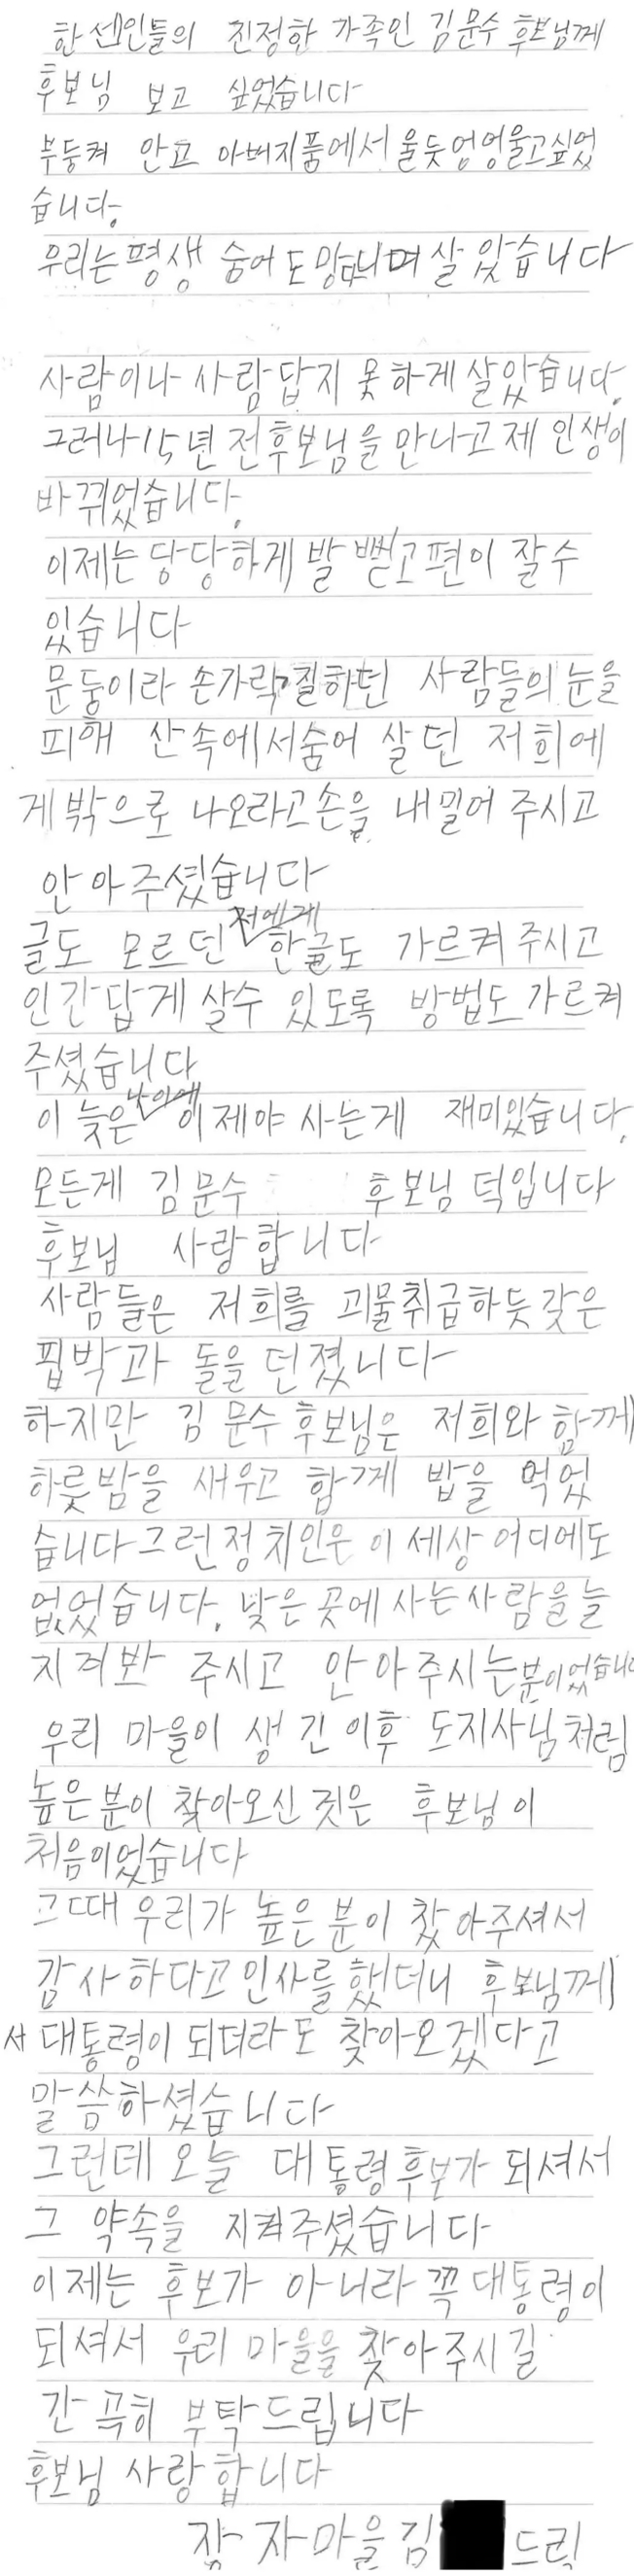 한센인들의 진정한 가족인 김문수 후보님께
후보님 보고 싶었습니다
부둥켜 안고 아버지품에서 울듯 엉엉울고싶었
습니다.
우리는 평생 숨어 도망다니며 살았습니다
사람이나 사람답지 못하게 살았습니다.
그러나 15년 전 후보님을 만나고 제 인생이
바뀌었습니다.
이제는 당당하게 발 뻗고 편이 잘수
있습니다
문둥이라 손가락질하던 사람들의 눈을
피해 산속에서 숨어 살던 저희에
게 밖으로 나오라고 손을 내밀어 주시고
안아주셨습니다
글도 모르던 저에게 한글도 가르켜 주시고
인간답게 살수 있도록 방법도 가르켜
주셨습니다
이 늦은 나이에 이제야 사는게 재미있습니다.
모든게 김문수 후보님 덕입니다
후보님 사랑합니다
사람들은 저희를 괴물취급하듯 갖은
핍박과 돌을 던졌니다
하지만 김문수 후보님은 저희와 함께
하룻밤을 새우고 함께 밥을 먹었
습니다 그런 정치인은 이 세상 어디에도
없었습니다. 낮은 곳에 사는 사람을 늘
지켜봐 주시고 안아주시는 분이었습니다
우리 마을이 생긴 이후 도지사님처럼
높은 분이 찾아오신 것은 후보님이
처음이었습니다
그때 우리가 높은 분이 찾아주셔서
감사하다고 인사를 했더니 후보님께
서 대통령이 되더라도 찾아오겠다고
말씀하셨습니다
그런데 오늘 대통령 후보가 되셔서
그 약속을 지켜주셨습니다
이제는 후보가 아니라 꼭 대통령이
되셔서 우리 마을을 찾아주시길
간곡히 부탁드립니다
후보님 사랑합니다
장자마을 김 드림